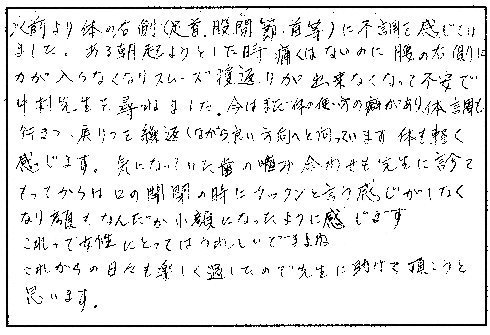 以前より体の右側(足首、股関節、首等)に不調を感じてい
ました。ある朝起ようとした時痛くはないのに腰の右側に
力が入らなくなりスムーズ寝返りが出来なくなって不安で
先生を尋ねました。今はまだ体の使い方の癖があり、体調も
行きつ、戻りつを繰返しながら良い方向へと向っています 体も軽く
感じます。気になっていた歯の噛み合わせも先生に診て
もらってからは口の開閉の時にカックンと言う感じがしなく
なり顔もなんだか小顔になったように感じます
これって女性にとってはうれしいですよね
これからの日々も楽しく過したいので先生に助けて頂こうと
思います。